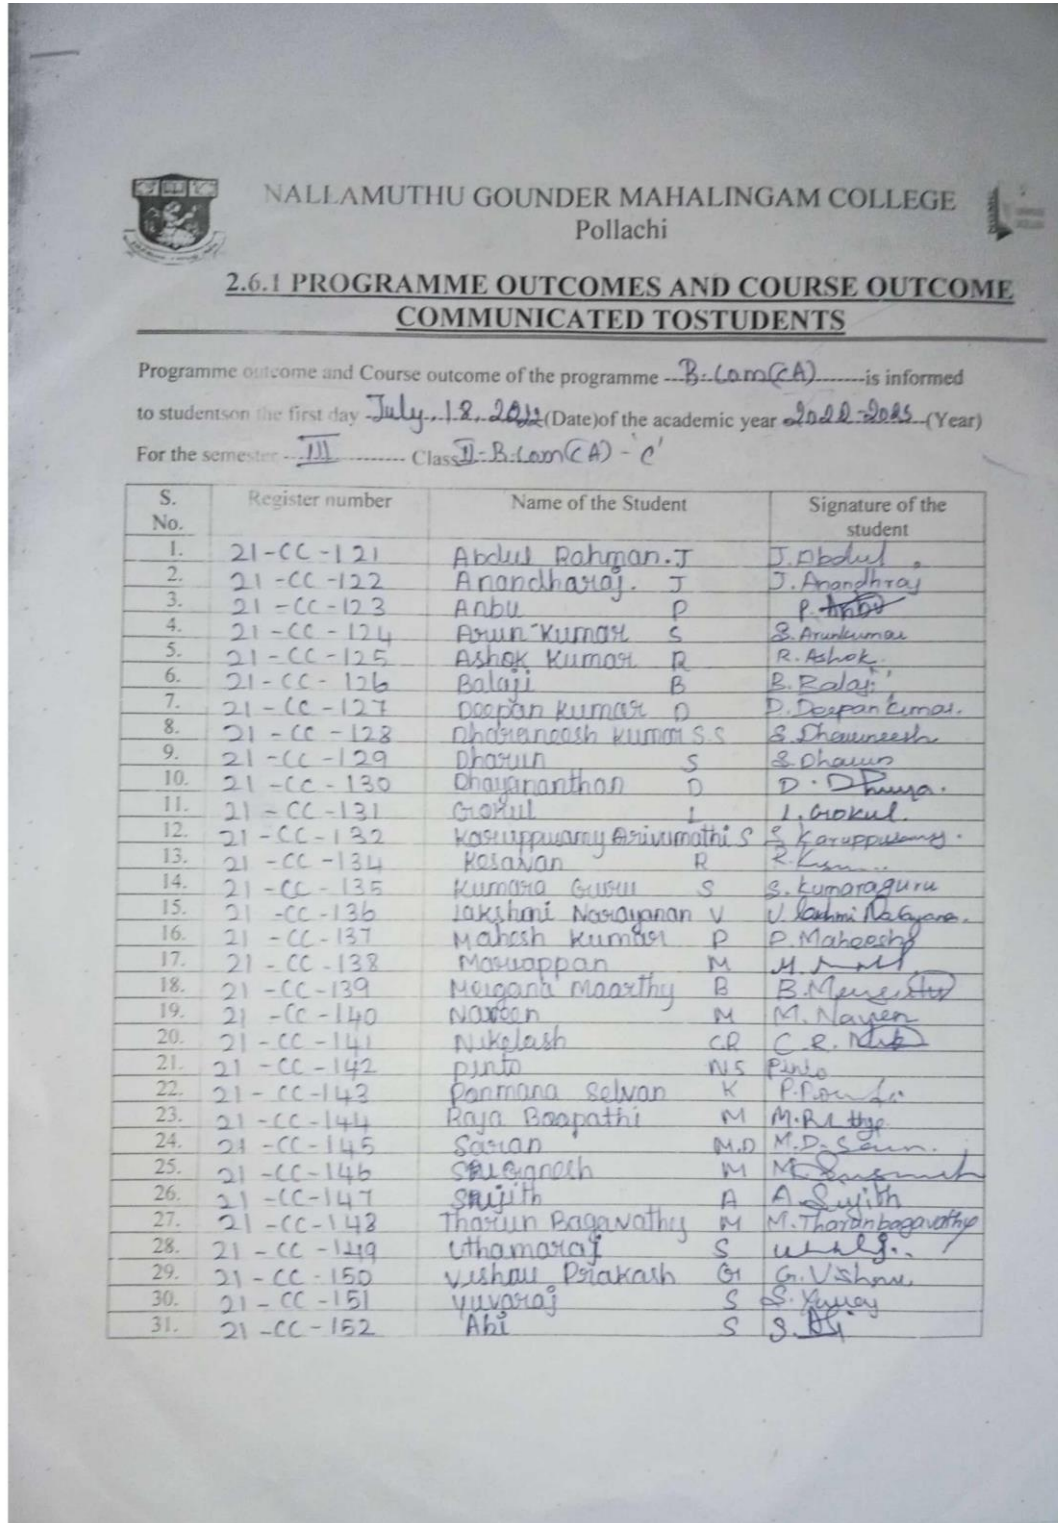 NALLAMUTHU GOUNDER MAHALINGAM COLLEGE
Pollachi
2.6.1 PROGRAMME OUTCOMES AND COURSE OUTCOME
COMMUNICATED TOSTUDENTS
Programme outcome and Course outcome of the programme ---B.Com(CA)-------is informed
to studentson the first day July, 18, 2022 (Date)of the academic year 2022-2023 (Year)
For the semester ---III---------- Class II-B.Com(CA) - 'C'
S. No. Register number Name of the Student Signature of the student
1. 21-CC-121 Abdul Rahman.J J.Abdul
2. 21-CC-122 Anandharaj. J J.Anandhraj
3. 21-CC-123 Anbu P P. Anbu
4. 21-CC-124 Arun Kumar S S.Arunkumar
5. 21-CC-125 Ashok Kumar R R.Ashok.
6. 21-CC-126 Balaji B B.Balaji
7. 21-CC-127 Deepan kumar D D.Deepan kumar.
8. 21-CC-128 Dharaneesh kumar S.S S.Dharuneesh
9. 21-CC-129 Dharun S S.Dharun
10. 21-CC-130 Dhayananthan D D.
11. 21-CC-131 Gokul L L.Gokul.
12. 21-CC-132 Karuppusamy Arivumathi S S Karuppusamy.
13. 21-CC-134 Kesavan R
14. 21-CC-135 Kumara Guru S S.kumaraguru
15. 21-CC-136 Lakshmi Narayanan V V.lakshmi Narayana.
16. 21-CC-137 Mahesh Kumar P P.Maheesh
17. 21-CC-138 Maruappan M
18. 21-CC-139 Meigana Moorthy B
19. 21-CC-140 Naveen M M.Naveen
20. 21-CC-141 Nikelash C.R C.R.
21. 21-CC-142 pinto N.S Pinto
22. 21-CC-143 Ponmana Selvan K
23. 21-CC-144 Raja Boopathi M
24. 21-CC-145 Saran M.D M.D.
25. 21-CC-146 Sri Gignesh M
26. 21-CC-147 Srijith A A.Sujith
27. 21-CC-148 Tharun Bagavathy M M.Tharanbagavathy
28. 21-CC-149 Uthamaraj S
29. 21-CC-150 Vishnu Prakash G G.Vishnu
30. 21-CC-151 Yuvaraj S S.Yuvaraj
31. 21-CC-152 Abi S S.Abi